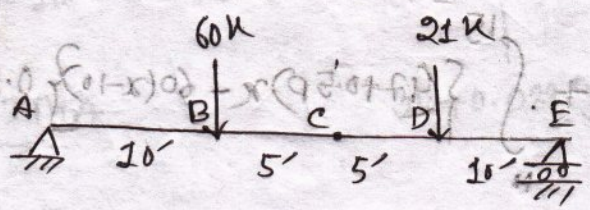 60K 21K
A B C D E
10' 5' 5' 10'